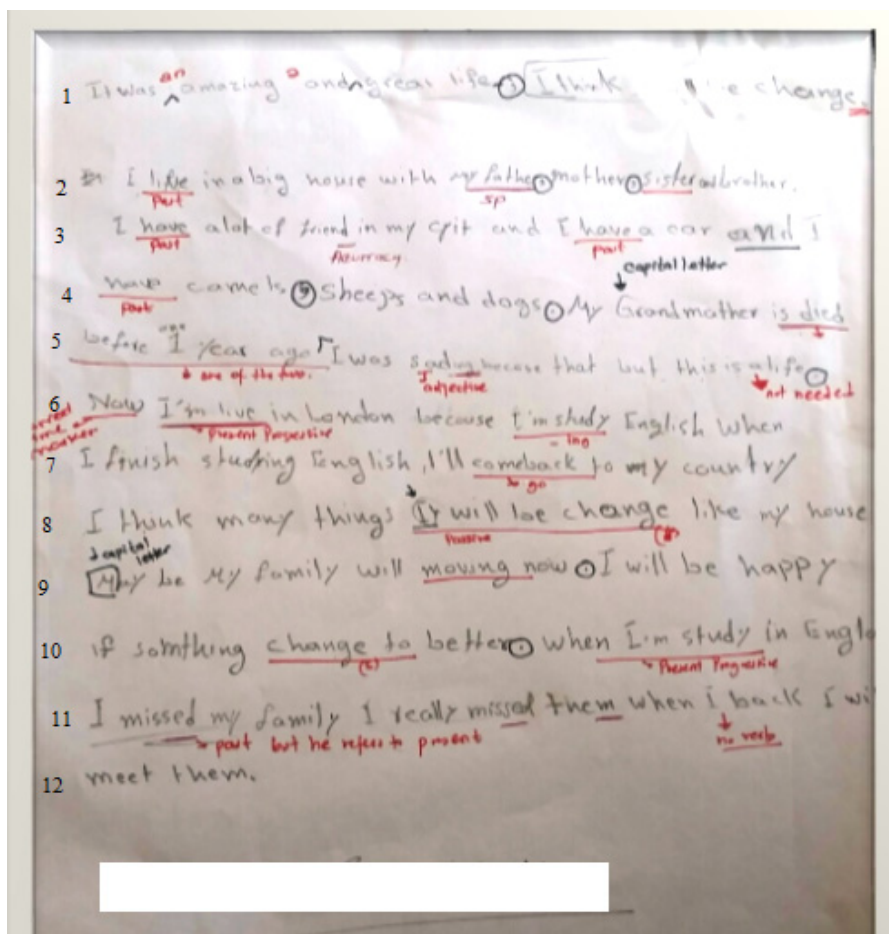 an
1 It was amazing and great life I think change
2 I life in a big house with my father mother sister and brother.
past sp
3 I have alot of friend in my and I have a car and I
past Accuracy past capital letter
4 have camels, sheeps and dogs. My Grandmother is died
past
5 before 1 year ago I was because that but this is a life.
one of the two. adjective not needed
6 Now I'm live in London because I'm study English when
marker Present Progressive - ing
7 I finish studying English, I'll comeback to my country
go
8 I think many things It will be change like my house
capital letter Passive
9 May be My family will moving now. I will be happy
10 if somthing change to better. when I'm study in
(s) Present Progressive
11 I missed my family I really missed them when I back I
past but he refers to present no verb
12 meet them.